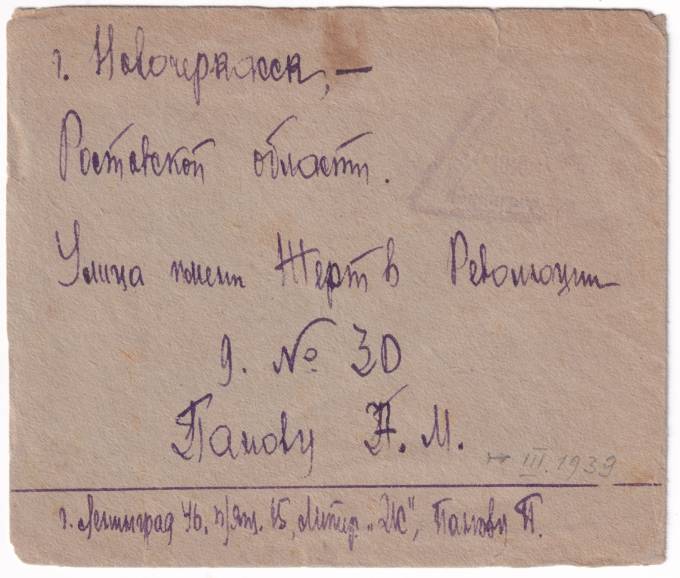 г. Новочеркасск, —
Ростовской области.
Улица имени Жертв Революции
д. № 30
Панову П. М.
III.1939
г. Ленинград 46, п/ящ. 15, Литер „Ж", Панову П.